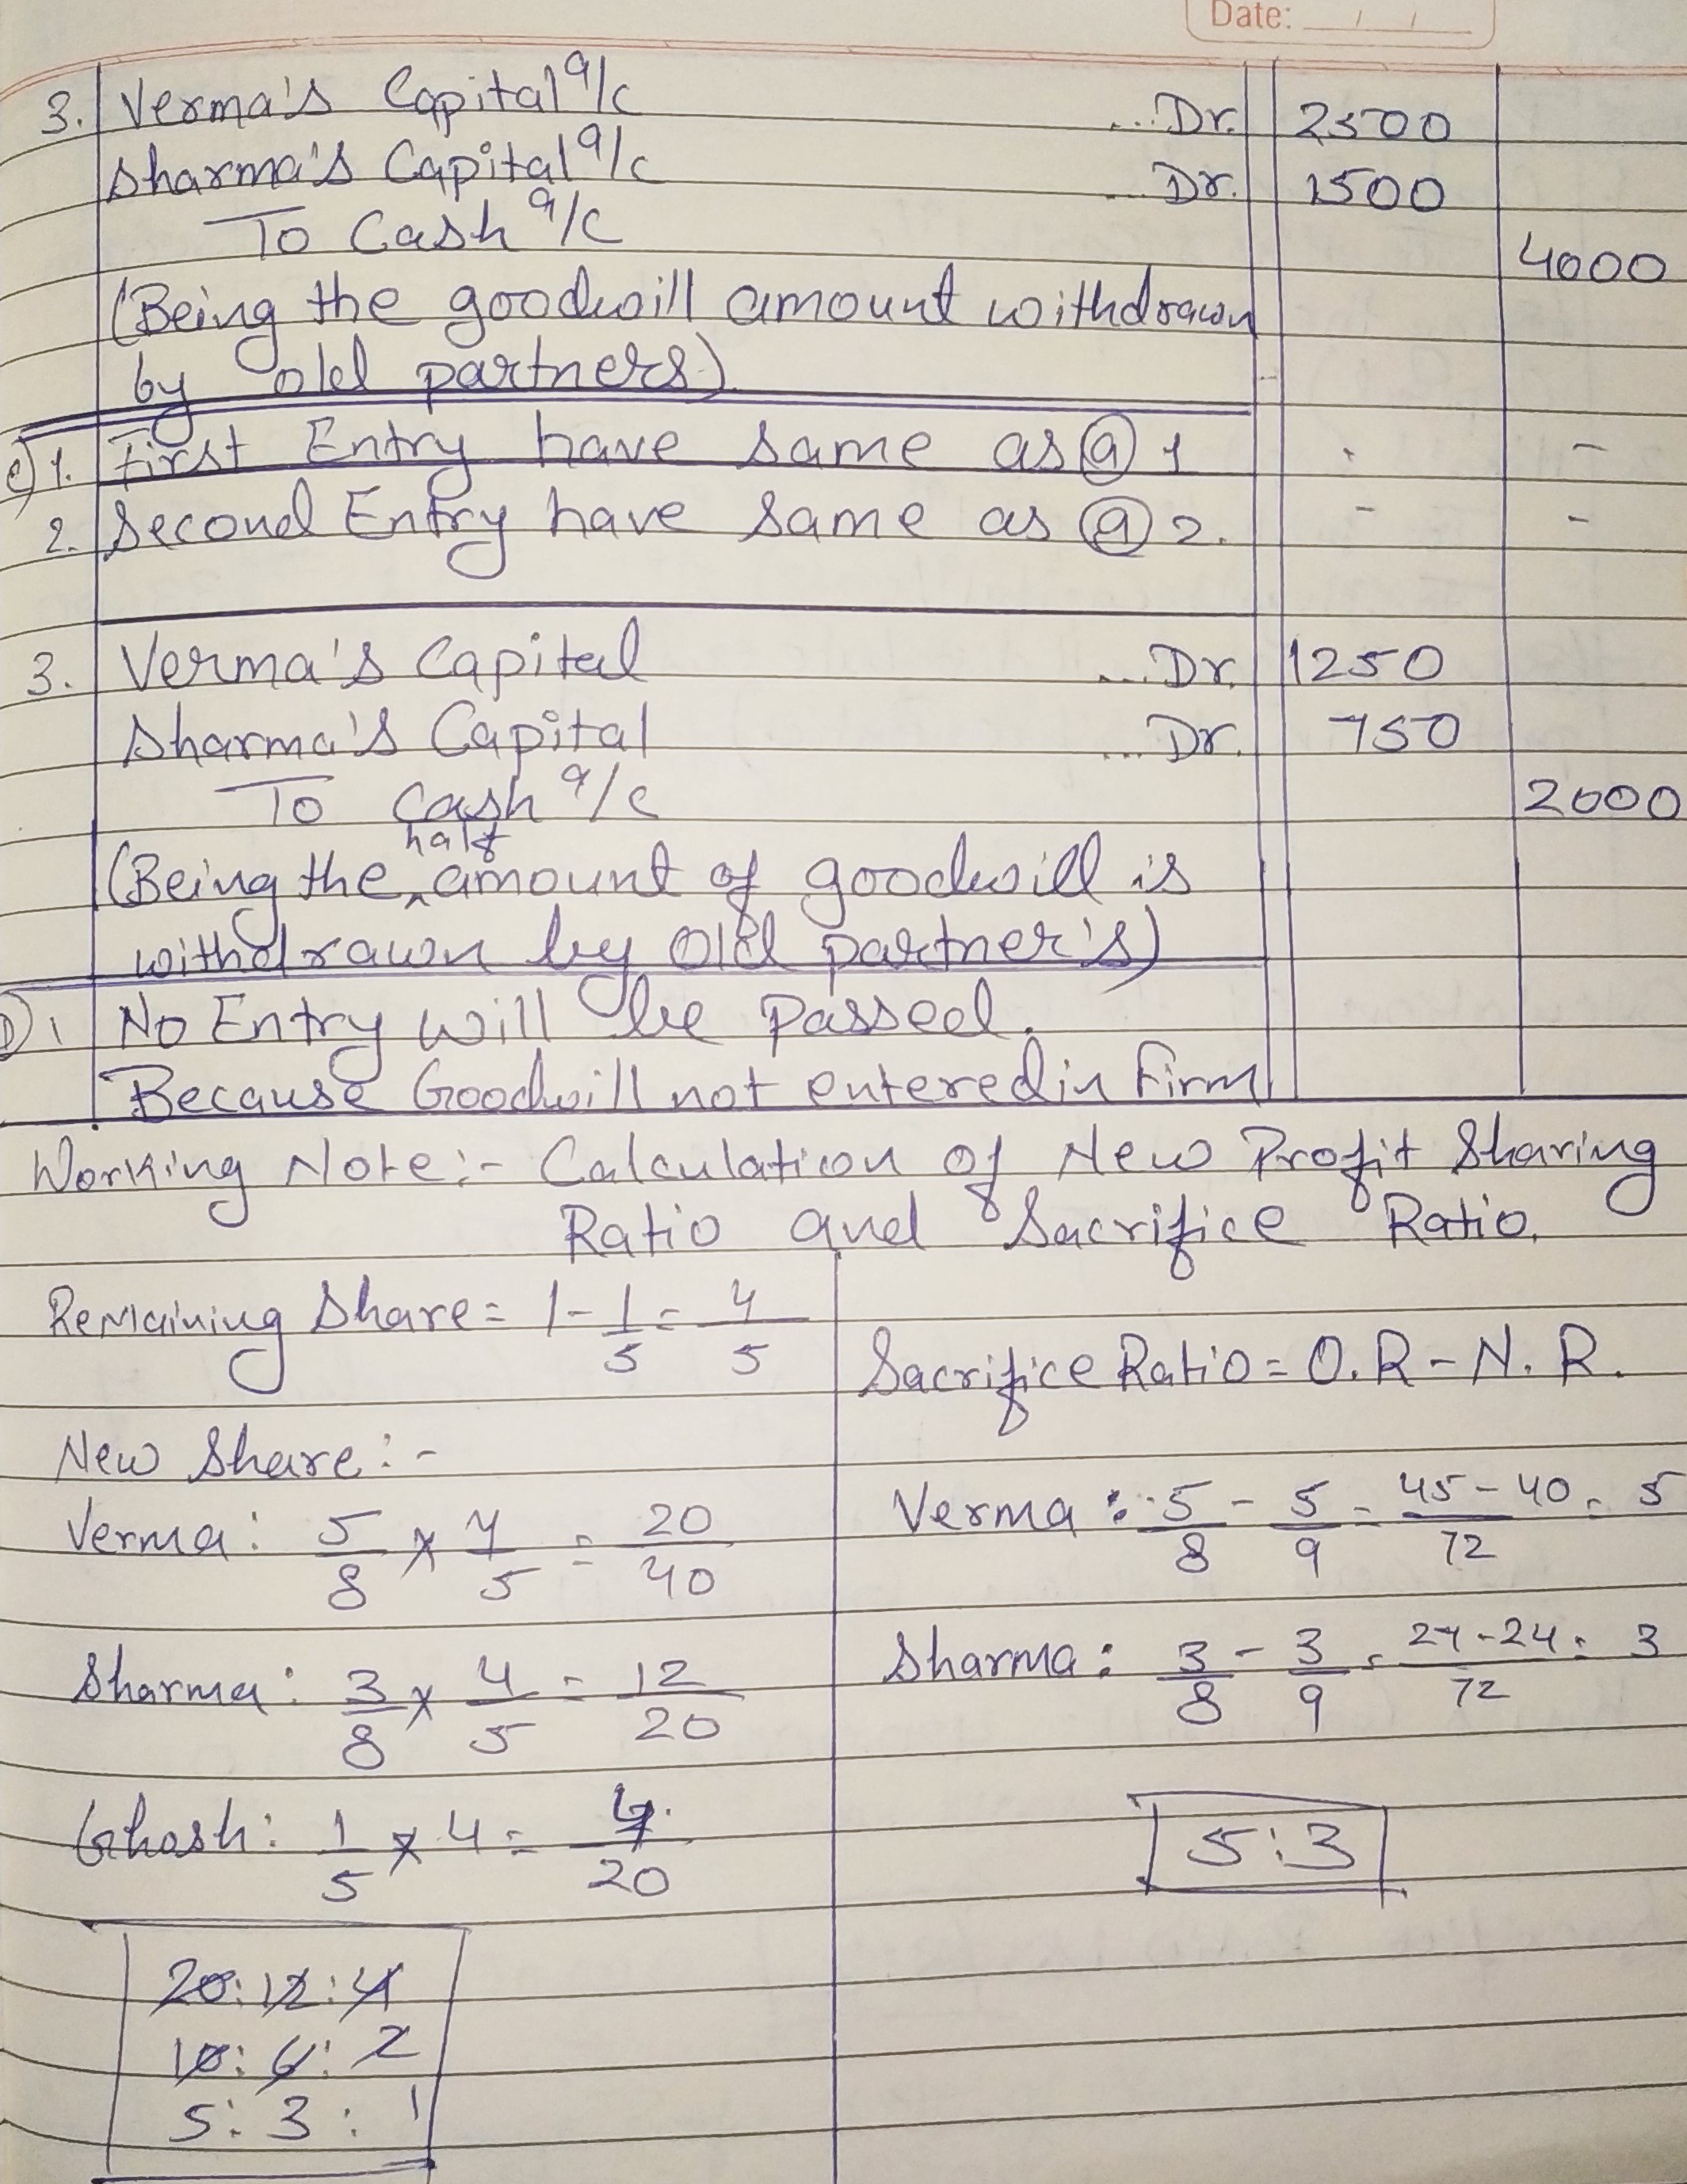 Date: / /
3. Verma's Capital a/c ... Dr. 2500
Sharma's Capital a/c ... Dr. 1500
To Cash a/c 4000
(Being the goodwill amount withdrawn
by old partners)
c) 1. First Entry have same as (a) 1 - -
2. Second Entry have same as (a) 2. - -
3. Verma's Capital ... Dr. 1250
Sharma's Capital ... Dr. 750
To Cash a/c 2000
(Being the half amount of goodwill is
withdrawn by Old partner's)
D) 1 No Entry will be Passed.
Because Goodwill not entered in Firm
Working Note:- Calculation of New Profit Sharing
Ratio and Sacrifice Ratio.
Remaining Share = 1 - 1/5 = 4/5
New Share:-
Verma: 5/8 x 4/5 = 20/40
Sharma: 3/8 x 4/5 = 12/20
Ghosh: 1/5 x 4 = 4/20
20:12:4
10:6:2
5:3:1
Sacrifice Ratio = O.R - N.R.
Verma: 5/8 - 5/9 = 45-40/72 = 5
Sharma: 3/8 - 3/9 = 27-24/72 = 3
5:3